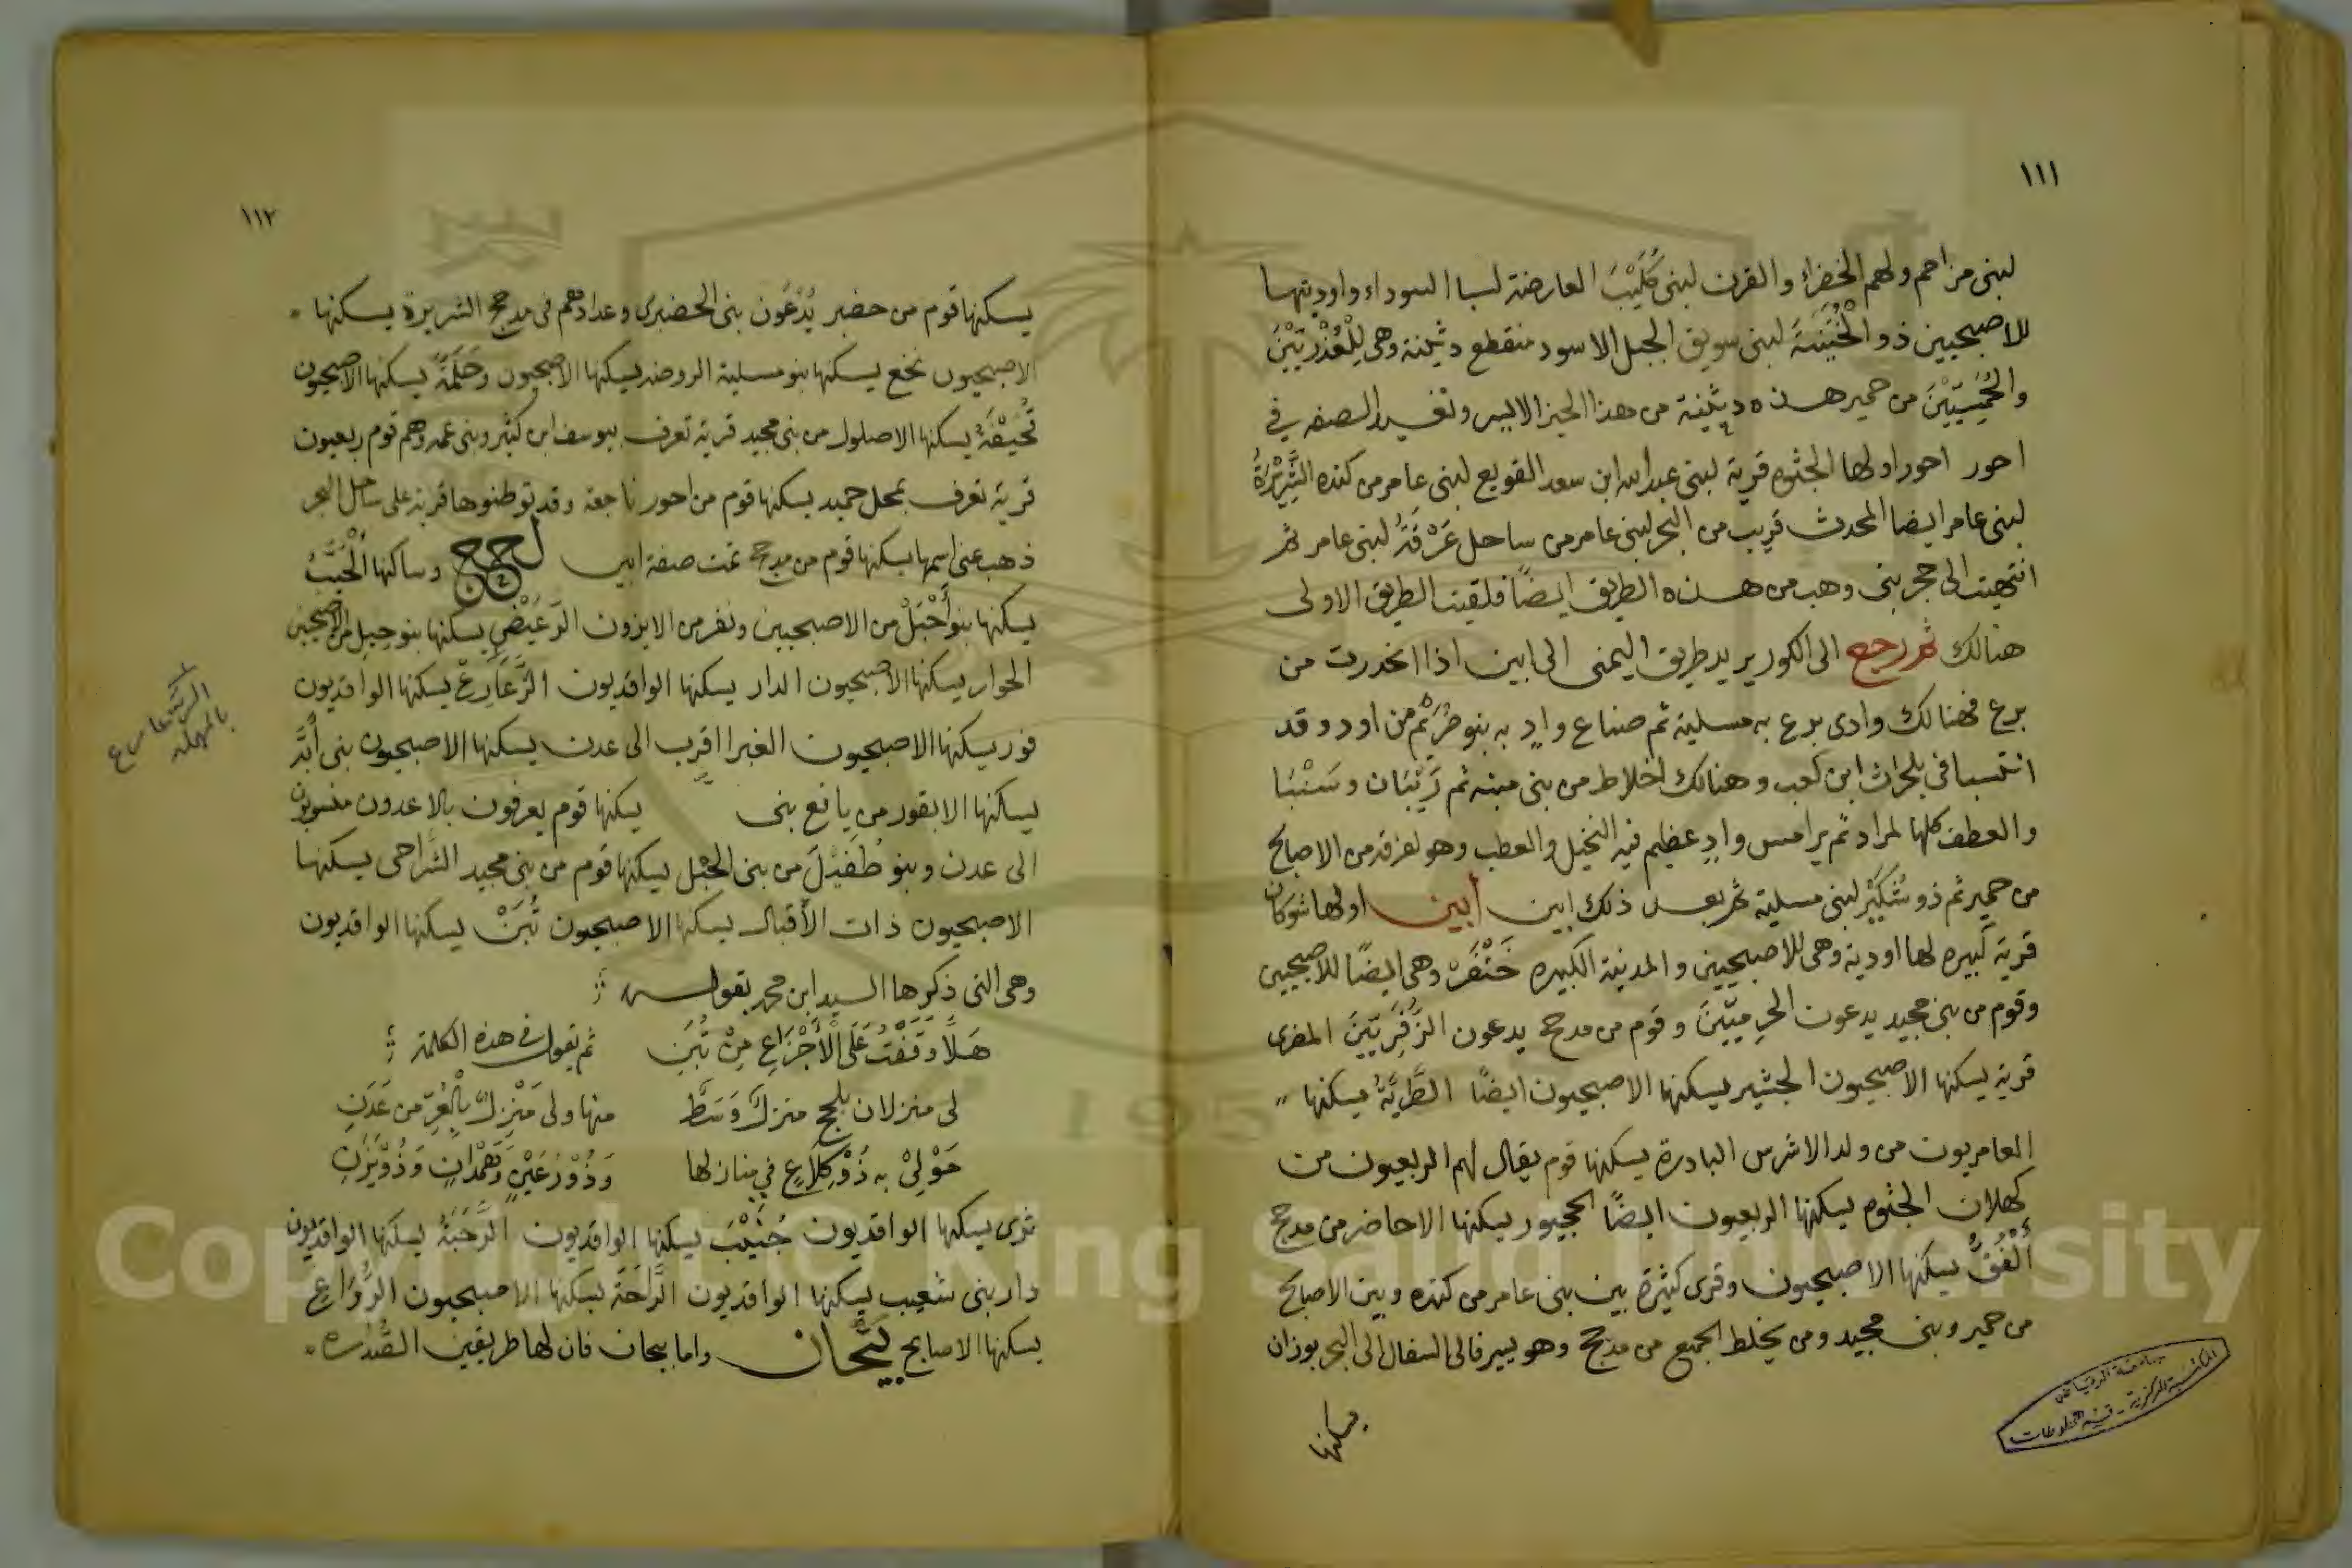 ١١١
لبنى مزاحم ولهم الخضراء والقرن لبنى كُلَيْبَ العارضة لسبا السوداء واوديتها
للاصبحيين ذو الْخُنَيْنَةَ لبنى سويق الجبل الاسود منقطع دثينة وهى لِلْعُذْرِيّيْنَ
والحُمَيِسِيّيْنَ من حمير هذه دثينة من هذا الحيز الايسر وتفسير الصنفه في
احور احور اولها الجثوه قرية لبنى عبدالله ابن سعد القويع لبنى عامر من كنده الشَّرِيْرَةُ
لبنى عامر ايضا المحدث قريب من البحر لبنى عامر من ساحل عَرْقَةُ لبنى عامر ثم
انتهيت الى حجر بنى وهب من هذه الطريق ايضًا فلقيت الطريق الاولى
هنالك ثم رجع الى الكور يريد طريق اليمنى الى ابين اذا انحدرت من
برع فهنالك وادى برع به مسلية ثم صناع وادٍ به بنو صُرَيْم من اود وقد
انتسبا فى بلحارث ابن كعب وهنالك اخلاط من بنى منبه ثم رَيْبَان وسَنْبَا
والعطف كلها لمراد ثم يرامس وادٍ عظيم فيه النخيل والعطب وهو لفرقة من الاصابح
من حمير ثم ذو شُكَيْرٍ لبنى مسلية ثم بعد ذلك ابين أبين اولها شوكان
قرية كبيره لها اودية وهى للاصبحيين والمدينة الكبيره خَنْفَرْ وهى ايضًا للاصبحيين
وقوم من بنى مجيد يدعون الحرميّيْنَ وقوم من مدحج يدعون الزَّفَرِيّيْنَ المضرى
قرية يسكنها الاصبحيون الجشير يسكنها الاصبحيون ايضًا الطَّرِيَّةُ يسكنها
العامريون من ولد الاشرس البادرة يسكنها قوم يقال لهم الربعيون من
كهلان الجثوه يسكنها الربعيون ايضًا الحجبور يسكنها الاحاضر من مدحج
أُنْفُقٌ يسكنها الاصبحيون وقرى كثيرة بين بنى عامر من كنده وبين الاصابح
من حمير وبنى مجيد ومن يخلط الجميع من مدحج وهو يسير فالى السفال الى البحر بوزان
يسكنها
جامعة الرياض
المكتبة المركزية - قسم المخطوطات
١١٢
يسكنها قوم من حضير يُدْعَوُن بنى الحضيرى وعدادهم فى مدحج الشريرة يسكنها
الاصبحيون نخع يسكنها بنو مسلية الروضه يسكنها الاصبحيون وحَلَمَةُ يسكنها الاصبحيون
تُحَيْفَةُ يسكنها الاصلول من بنى مجيد قرية تعرف بيوسف ابن كثير وبنى عمه وهم قوم ربعيون
قرية تعرف بمحل حميد يسكنها قوم من احور ناجعة وقد توطنوها قرية على ساحل البحر
ذهب عنى اسمها يسكنها قوم من مدحج تمت صفة ابين لحج وساكنها الْخَبَتُ
يسكنها بنو أَحْبَلْ من الاصبحيين ونفر من الايزون الرَعَيْضِ يسكنها بنو حبيل من الاصبحيين
الحوار يسكنها الاصبحيون الدار يسكنها الواقديون الرَّعَارِعْ يسكنها الواقديون
فور يسكنها الاصبحيون الغبرا اقرب الى عدن يسكنها الاصبحيون بنى أَبَّة
يسكنها الابقور من يافع بنى يسكنها قوم يعرفون بالاعدون منسوبون
الى عدن وبنو طُفَيْلَ من بنى الحبل يسكنها قوم من بنى مجيد الشَّراحى يسكنها
الاصبحيون ذات الأَقبال يسكنها الاصبحيون تُبَنْ يسكنها الواقديون
وهى التى ذكرها السيد ابن محمد بقوله
هَلَّا وَقَفْتَ عَلَى الْأَجْزَاعِ مِنْ تُبَنِ ثم يقول فى هذه الكلمة
لى منزلان بلحج منزلٌ وَسَطٌ منها ولى مَنْزِلٌ بالْعُرِّ من عَدَنِ
حَوْلِىْ بِهِ ذُوْكِلَاعٍ فِي منازلها وَذُوْرُعَيْنٍ وَهَمْدَانٍ وَذُوْيَزَنِ
ثرى يسكنها الواقديون جُنَيْبُ يسكنها الواقديون الرَّحَبَةُ يسكنها الواقديون
دار بنى شعيب يسكنها الواقديون الرَّاحَةُ يسكنها الاصبحيون الرُّوَاعِ
يسكنها الاصابح بَيْحَان واما بيحان فان لها طريقين القُدَاره
الرعارع
بالمهملة